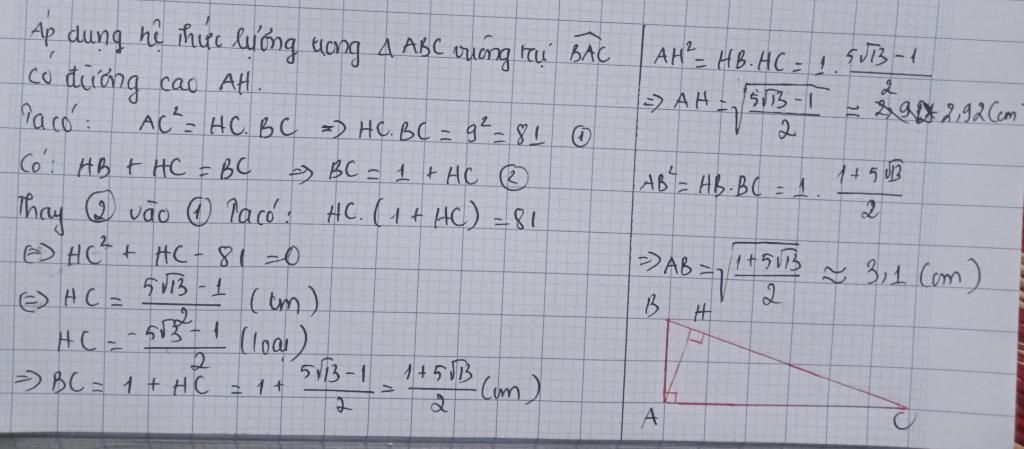 Áp dụng hệ thức lượng trong Δ ABC vuông tại \widehat{BAC}
có đường cao AH.
Ta có: AC² = HC.BC => HC.BC = 9² = 81 ①
Có: HB + HC = BC => BC = 1 + HC ②
Thay ② vào ① Ta có: HC.(1 + HC) = 81
<=> HC² + HC - 81 = 0
<=> HC = \frac{5√13 - 1}{2} (cm)
HC = \frac{-5√13 - 1}{2} (loại)
=> BC = 1 + HC = 1 + \frac{5√13 - 1}{2} = \frac{1 + 5√13}{2} (cm)
AH² = HB.HC = 1 . \frac{5√13 - 1}{2}
=> AH = \sqrt{\frac{5√13 - 1}{2}} = 2,92 (cm
AB² = HB.BC = 1 . \frac{1 + 5√13}{2}
=> AB = \sqrt{\frac{1 + 5√13}{2}} ≈ 3,1 (cm)
B H
A C